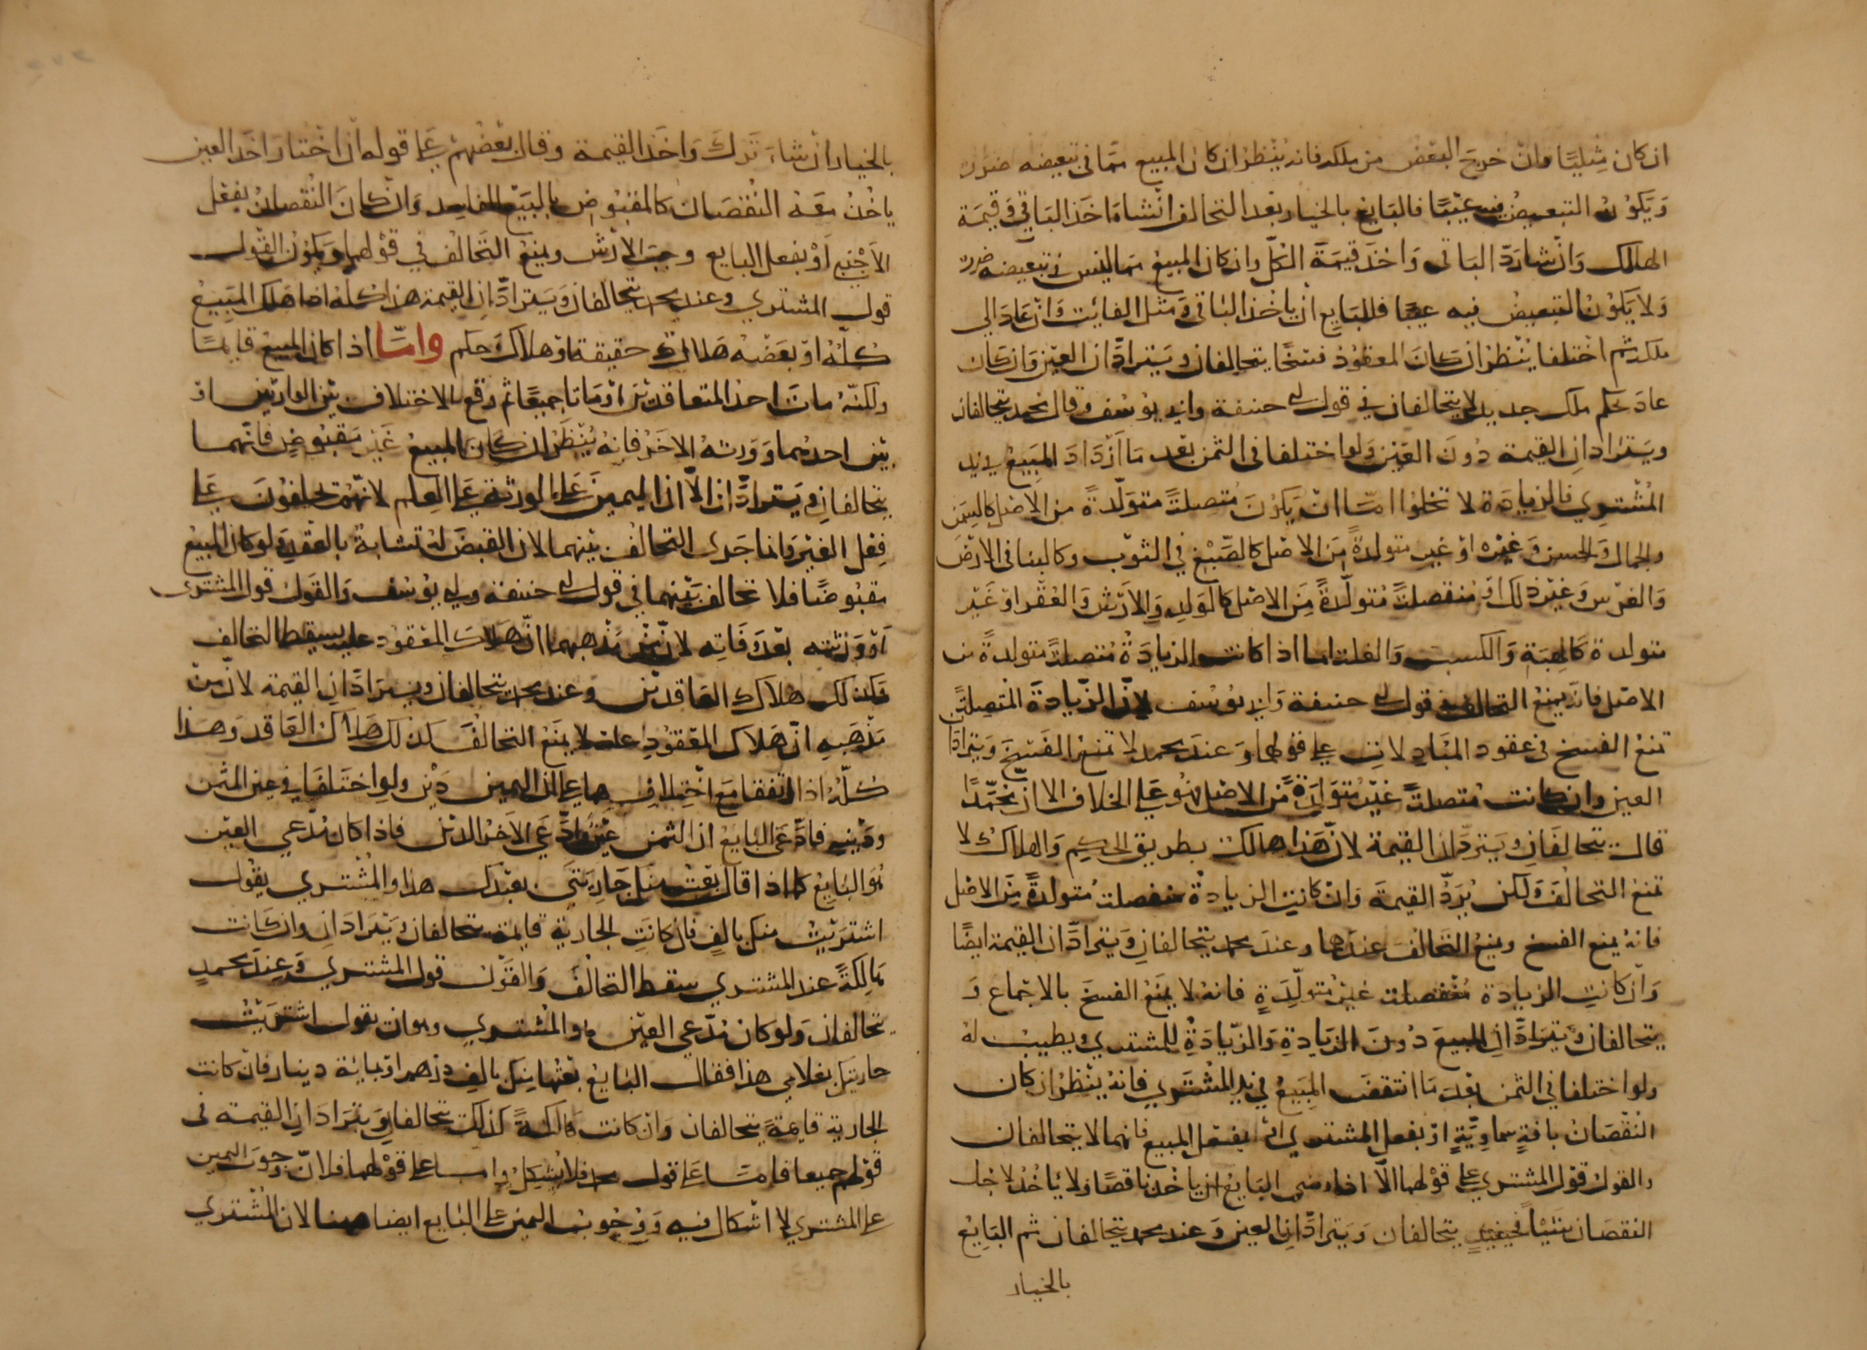 ان كان مثليا وان خرج البعض من ملكه فانه ينظر ان كان المبيع مما في تبعيضه ضرر
ويكون التبعيض فيه عيبا فالبايع بالخيار بعد التحالف ان شاء اخذ الباقي وقيمة
الهالك وان شا رد الباقي واخذ قيمة الكل وان كان المبيع مما ليس في تبعيضه ضرر
ولا يكون التبعيض فيه عيبا فللبايع ان ياخذ الباقي ومثل الفايت وان عاد الي
ملكه ثم اختلفا ينظر ان كان المعقود فسخا يتحالفان ويترادان العين وان كان
عاد بحكم ملك جديد لا يتحالفان في قول ابي حنيفة وابي يوسف وقال محمد يتحالفان
ويترادان القيمة دون العين ولو اختلفا في الثمن بعد ما ازداد المبيع في يد
المشتري فالزيادة لا تخلوا اما ان يكون متصلة متولدة من الاصل كالسمن
والجمال والحسن وغيره او غير متولدة من الاصل كالصبغ في الثوب وكالبنا في الارض
والغرس وغير ذلك او منفصلة متولدة من الاصل كالولد والارش والعقر او غير
متولدة كالهبة والكسب والغلة اما اذا كانت الزيادة متصلة متولدة من
الاصل فانه يمنع التحالف في قول ابي حنيفة وابي يوسف لان الزيادة المتصلة
تمنع الفسخ في عقود المبادلات علي قولهما وعند محمد لا تمنع الفسخ ويترادان
العين وان كانت متصلة غير متولدة من الاصل فهو علي الخلاف الا ان محمدا
قال يتحالفان ويترادان القيمة لان هذا هالك بطريق الحكم والهلاك لا
تمنع التحالف ولكن يرد القيمة وان كانت الزيادة منفصلة متولدة من الاصل
فانه يمنع الفسخ ويمنع التحالف عندهما وعند محمد يتحالفان ويترادان القيمة ايضا
وان كانت الزيادة منفصلة غير متولدة فانه لا يمنع الفسخ بالاجماع و
يتحالفان ويترادان المبيع دون الزيادة والزيادة للمشتري ويطيب له
ولو اختلفا في الثمن بعد ما انتقض المبيع في يد المشتري فانه ينظر ان كان
النقصان بافة سماوية او بفعل المشتري او بفعل المبيع فانهما لا يتحالفان
والقول قول المشتري علي قولهما الا اذا رضي البايع ان ياخذ ناقصا ولا ياخذ لاجل
النقصان شيئا فحينئذ يتحالفان ويترادان العين وعند محمد يتحالفان ثم البايع
بالخيار
بالخيار ان شاء ترك واخذ القيمة وقال بعضهم علي قوله ان اختار اخذ العين
ياخذ معه النقصان كالمقبوض بالبيع الفاسد وان كان النقصان بفعل
الاجنبي او بفعل البايع وجب الارش ويمنع التحالف في قولهما ويكون القول
قول المشتري وعند محمد يتحالفان ويترادان القيمة هذا كله اذا هلك المبيع
كله او بعضه هلاك حقيقة او هلاك حكم واما اذا كان المبيع قايما
ولكنه مات احد المتعاقدين او ماتا جميعا ثم وقع الاختلاف بين الوارثين او
بين احدهما وورثة الاخر فانه ينظر ان كان المبيع غير مقبوض فانهما
يتحالفان ويترادان الا ان اليمين علي الورثة علي العلم لانهم يحلفون علي
فعل الغير وانما جري التحالف بينهما لان القبض له تشابه بالعقد ولو كان المبيع
مقبوضا فلا تحالف بينهما في قول ابي حنيفة وابي يوسف والقول قول المشتري
او ورثته بعد وفاته لان من مذهبهما ان هلاك المعقود عليه يسقط التحالف
فكذلك هلاك العاقدين وعند محمد يتحالفان ويترادان القيمة لان من
مذهبه ان هلاك المعقود عليه لا يمنع التحالف كذلك هلاك العاقد وهذا
كله اذا اتفقا مع اختلافهما علي ان الثمن دين ولو اختلفا في عين الثمن
ودينه فادعي البايع ان الثمن عين وادعي الاخر الدين فاذا كان مدعي العين
هو البايع كما اذا قال بعت منك جاريتي بعبدك هذا والمشتري يقول
اشتريت منك بالف فان كانت الجارية قايمة يتحالفان ويترادان وان كانت
هالكة عند المشتري سقط التحالف والقول قول المشتري وعند محمد
يتحالفان ولو كان مدعي العين هو المشتري وهو ان يقول اشتريت
جاريتك بغلامي هذا فقال البايع بعتها منك بالف درهم او بمائة دينار فان كانت
الجارية قايمة يتحالفان وان كانت هالكة كذلك يتحالفان ويترادان القيمة في
قولهم جميعا فاما علي قول محمد فلا يشكل واما علي قولهما فلان وجوب اليمين
علي المشتري لا اشكال فيه ووجوب اليمين علي البايع ايضا ههنا لان المشتري